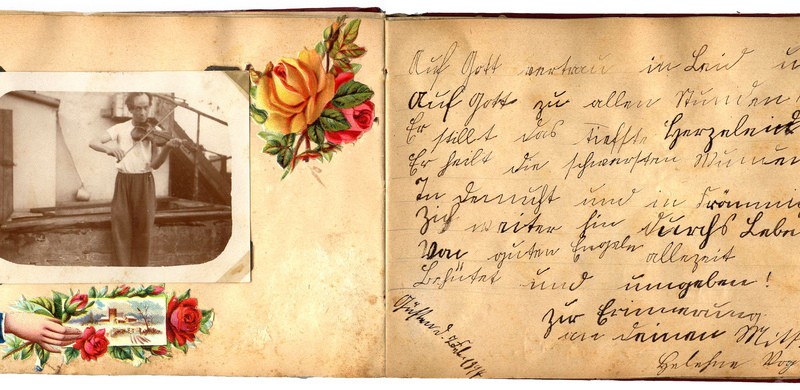 Auf Gott vertrau in Leid u
Auf Gott zu allen Stunden!
Er stillt das tiefste Herzeleid
Er heilt die schwersten Wunden
In Demuht und in Frömmig
Zieh weiter hin durchs Lebe
Von guten Engeln allezeit
Behütet und umgeben!
Zur Erinnerung
an deinen Mits
Helehne Vog